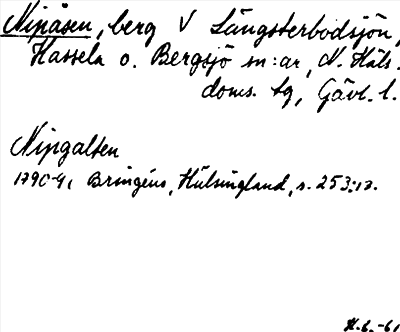 Nipåsen, berg V Långsterbodsjön,
Hassela o. Bergsjö sn:ar, N. Häls.
doms. tg, Gävl. l.
Nipgalten
1790-t, Bringéus, Hälsingland, s. 253:13.
H.G.-61